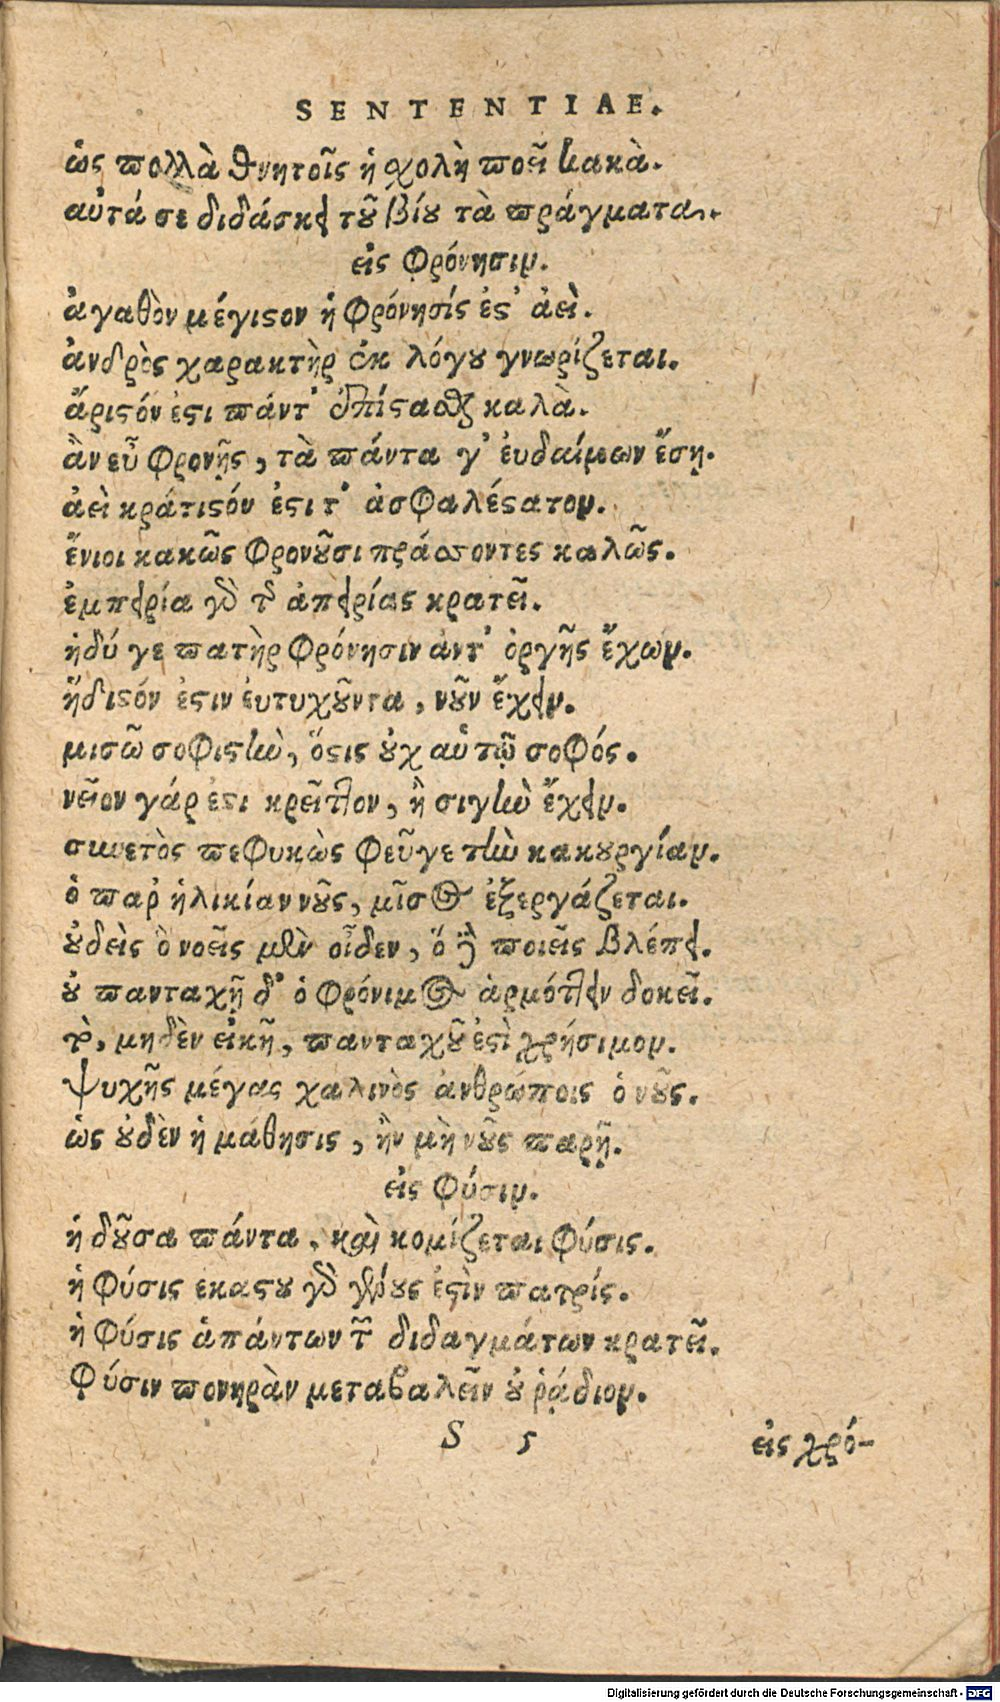 SENTENTIAE.
ὡς πολλὰ θνητοῖς ἡ χολὴ ποεῖ κακὰ.
αὐτά σε διδάσκει τοῦ βίου τὰ πράγματα.
εἰς φρόνησιν.
ἀγαθὸν μέγιστον ἡ φρόνησίς ἐστ' ἀεὶ.
ἀνδρὸς χαρακτὴρ ἐκ λόγου γνωρίζεται.
ἄριστόν ἐστι πάντ' ἐπίστασθαι καλὰ.
ἂν εὖ φρονῇς, τὰ πάντα γ' ἐυδαίμων ἔσῃ.
ἀεὶ κράτιστόν ἐστι τ' ἀσφαλέστατον.
ἔνιοι κακῶς φρονοῦσι πράσσοντες καλῶς.
ἐμπειρία γὰρ τῆς ἀπειρίας κρατεῖ.
ἡδύ γε πατὴρ φρόνησιν ἀντ' ὀργῆς ἔχων.
ἥδιστόν ἐστιν ἐυτυχοῦντα, νοῦν ἔχειν.
μισῶ σοφιστὴν, ὅστις οὐχ αὑτῷ σοφός.
νεῖον γάρ ἐστι κρεῖττον, ἢ σιγὴν ἔχειν.
συνετὸς πεφυκὼς φεῦγε τὴν κακουργίαν.
ὁ παρ ἡλικίαν νοῦς, μῖσος ἐξεργάζεται.
οὐδεὶς ὃ νοεῖς μὲν οἶδεν, ὅ δὲ ποιεῖς βλέπει.
οὐ πανταχῇ δ' ὁ φρόνιμος ἁρμόττειν δοκεῖ.
τὸ, μηδὲν εἰκῆ, πανταχοῦ ἐστὶ χρήσιμον.
ψυχῆς μέγας χαλινὸς ἀνθρώποις ὁ νοῦς.
ὡς οὐδὲν ἡ μάθησις, ἢν μὴ νοῦς παρῇ.
εἰς φύσιν.
ἡ δοῦσα πάντα, καὶ κομίζεται φύσις.
ἡ φύσις εκαστου γὰρ γένους ἐστὶν πατρίς.
ἡ φύσις ἁπάντων τῶν διδαγμάτων κρατεῖ.
φύσιν πονηρὰν μεταβαλεῖν οὐ ῥᾴδιον.
S 5 εἰς χρό-
Digitalisierung gefördert durch die Deutsche Forschungsgemeinschaft - DFG